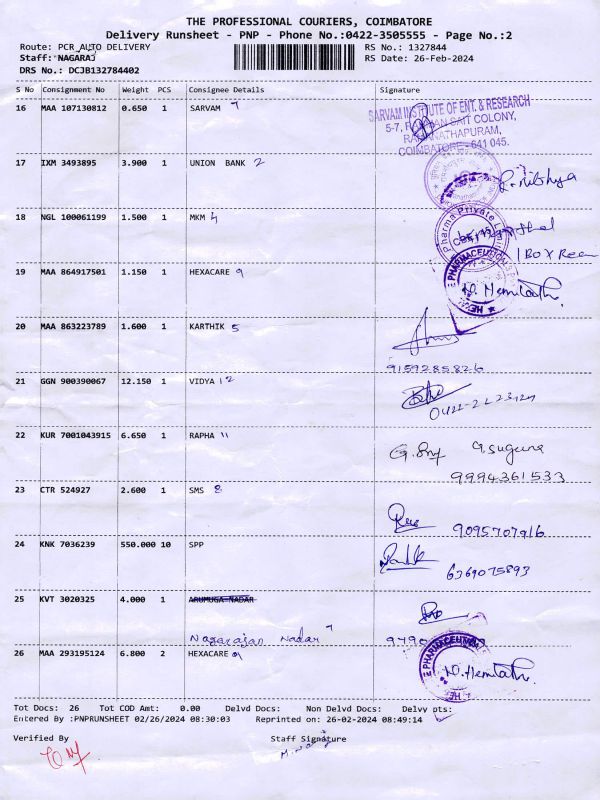 THE PROFESSIONAL COURIERS, COIMBATORE
Delivery Runsheet - PNP - Phone No.:0422-3505555 - Page No.:2
Route: PCR AUTO DELIVERY RS No.: 1327844
Staff: NAGARAJ RS Date: 26-Feb-2024
DRS No.: DCJB132784402
S No Consignment No Weight PCS Consignee Details Signature
16 MAA 107130812 0.650 1 SARVAM 7
SARVAM INSTITUTE OF ENT. & RESEARCH
5-7, SAIT COLONY,
RAMANATHAPURAM,
COIMBATORE - 641 045.
17 IXM 3493895 3.900 1 UNION BANK 2
18 NGL 100061199 1.500 1 MKM 4
Pharma Private
1 Box
19 MAA 864917501 1.150 1 HEXACARE 9 N. Hemilath.
PHARMACEUTICALS
20 MAA 863223789 1.600 1 KARTHIK 5
9159285826
21 GGN 900390067 12.150 1 VIDYA 12
22 KUR 7001043915 6.650 1 RAPHA 11 G. Suguna
9994361533
23 CTR 524927 2.600 1 SMS 8
9095707916
24 KNK 7036239 550.000 10 SPP
6369075893
25 KVT 3020325 4.000 1 ARUMUGA NADAR
Nagarajan Nadar 7
26 MAA 293195124 6.800 2 HEXACARE 9 N. Hemilath.
Tot Docs: 26 Tot COD Amt: 0.00 Delvd Docs: Non Delvd Docs: Delvy pts:
Entered By :PNPRUNSHEET 02/26/2024 08:30:03 Reprinted on: 26-02-2024 08:49:14
Verified By Staff Signature